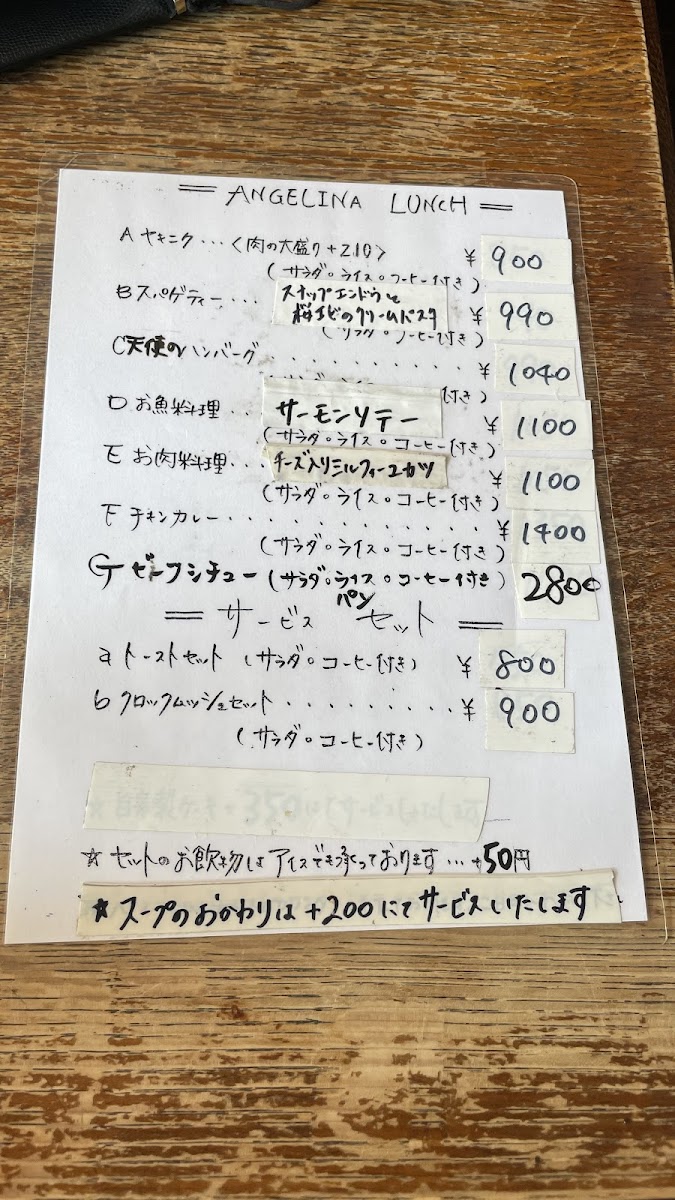 = ANGELINA LUNCH =
A ヤキニク・・・〈肉の大盛り+210〉 ¥ 900
(サラダ。ライス・コーヒー付き)
Bスパゲティー・・・ スナップエンドウと ¥ 990
桜エビのクリームパスタ
(サラダ・コーヒー付き)
C天使のハンバーグ・・・・・・・・・ ¥ 1040
付き)
D お魚料理・・ サーモンソテー ¥ 1100
(サラダ・ライス・コーヒー付き)
E お肉料理・・・ チーズ入りミルフィーユカツ ¥ 1100
(サラダ。ライス・コーヒー付き)
F チキンカレー・・・・・・・・・・・・ ¥ 1400
(サラダ。ライス・コーヒー付き)
G ビーフシチュー(サラダ。ライス・コーヒー付き) 2800
パン
= サービス セット =
a トーストセット (サラダ。コーヒー付き) ¥ 800
b クロックムッシュセット・・・・・・・・・ ¥ 900
(サラダ。コーヒー付き)
☆ セットのお飲物はアイスでも承っております・・・+50円
★ スープのおかわりは+200にてサービスいたします